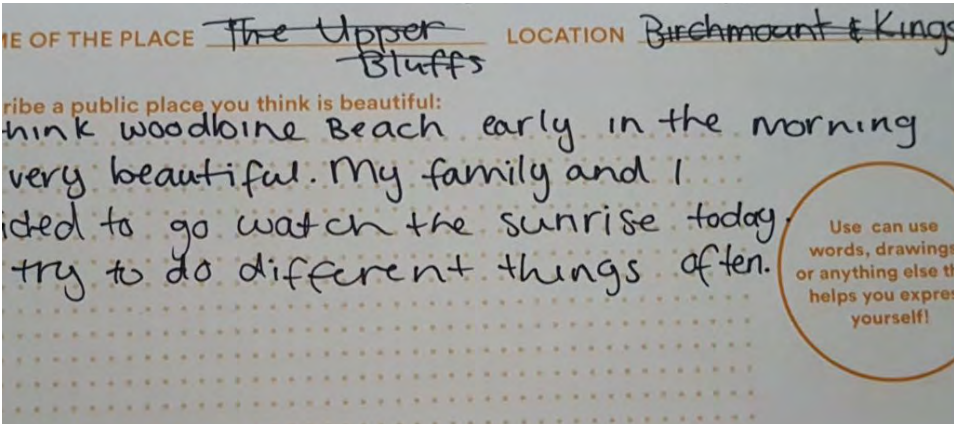 ME OF THE PLACE The Upper Bluffs LOCATION Birchmount & Kings
ribe a public place you think is beautiful:
hink woodbine Beach early in the morning
very beautiful. My family and I
ided to go watch the sunrise today.
try to do different things often.
Use can use
words, drawings
or anything else th
helps you expres
yourself!